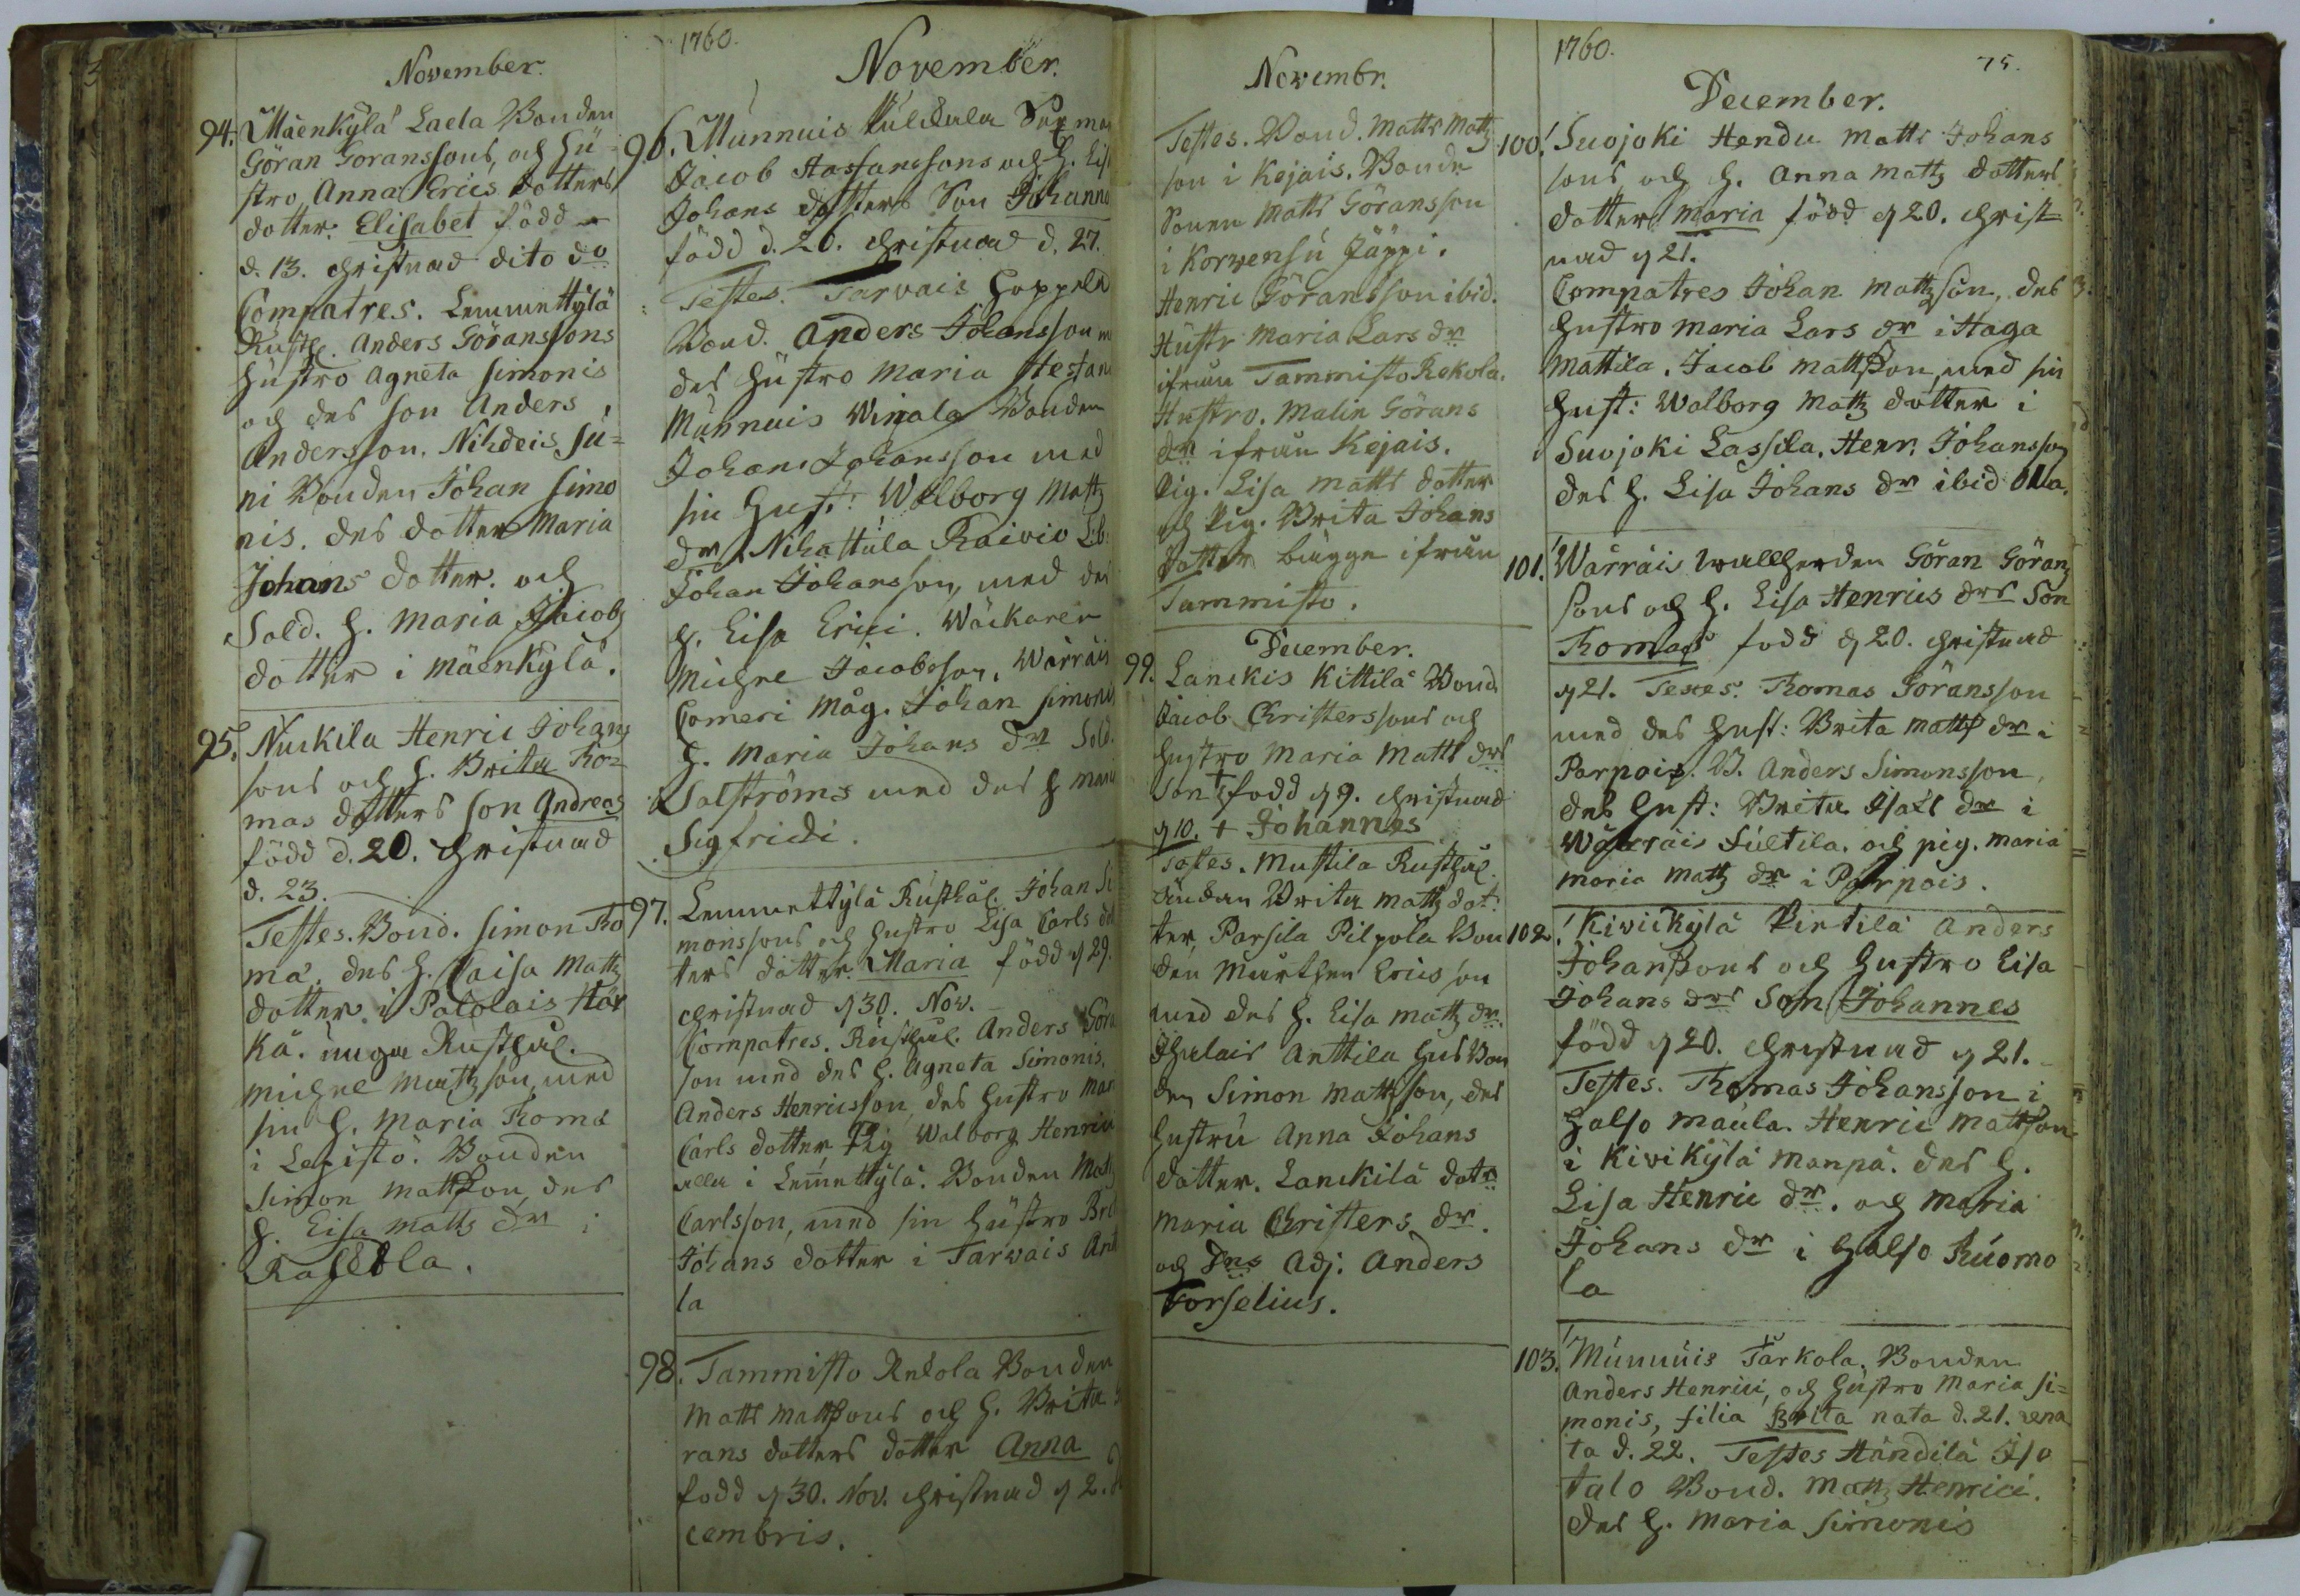 November.
94. Mäenkylä Laela Bonden
Göran Göranssons, och Hu
stro Anna Erics dotters
dotter. Elisabet född
d. 13. christnad dito do
Compatres. Lemmettylä
Rusth. Anders Göranssons
Hustro Agneta Simonis
och des son Anders
Andersson. Nihdeis Su=
ni Bonden Johan Simo
nis. des dotter Maria
Johans dotter. och
Sold. H. Maria Jacobs
dotter i Mäenkylä.
95. Nuskila Henric Johans
sons och H. Brita Tho=
mas dotters son Andreas
född d. 20. Christnad
d. 23.
Testes. Bond. Simon Tho
mæ. des H. Caisa Matts
dotter i Palolais Här
kä. unga Rusthål.
Michel Mattsson, med
sin H. Maria Thomæ
i Lepistö. Bonden
Simon Mattsson, des
H. Lisa Matts dr i
1760.
November.
96. Munnuis Sex man
Jacob Staffanssons och H. Lis
Johans dotters Son Johanne
född d. 26. Christnad d. 27.
Testes. Tarvais Hoppela
Bond. Anders Johansson m
des Hustro Maria Stefan
Munnuis Winala Bonden
Johan Johansson med
sin Hust: Walborg Matts
dr. Nihattula Raivio
Johan Johansson, med des
H. Lisa Erici. Wäckaren
Michel Jacobsson. Wärräis
Comeri Måg. Johan Simonis
H. Maria Johans dr Sold.
Salströms med des H Maria
Sigfridi.
97. Lemmettylä Rusthål. Johan Si
monssons och Hustro Lisa Carls dot
ters dotter. Maria född d 29.
christnad d 30. Nov.
Compatres. Rusthål. Anders Göra
son med des H. Agneta Simonis.
Anders Henricsson, des Hustro Mar
Carls dotter Pig Walborg Henrics
alla i Lemettylä. Bonden Matts
Carlsson, med sin Hustro Brit
Johans dotter i Tarwais Ant
la
98. Tammisto Rekola Bonden
Matts Mattssons och H. Brita
rans dotters dotter Anna
född d 30. Nov. christnad d 2. De
cembris.
Novembr.
Testes. Bond. Matts Matts
son i Kejais. Bonde
Sonen Matts Göransson
i Korvensu Jäppi.
Henric Göransson ibid.
Hustr Maria Lars dr
ifrån Tammisto Rekola.
Hustro. Malin Görans
dr ifrån Kejais.
Pig. Lisa Matts dotter
och Pig. Brita Johans
dotter bägge ifrån
Tammisto.
December.
99. Lanckis Kittilä Bond
Jacob Christerssons och
Hustro Maria Matts drs
Son + född d 9. christnad
d 10. + Johannes
Testes. Mustila Rusthål.
Änckan Brita Matts dot:
ter, Parsila Pilpola Bon
den Mårthen Ericsson
med des H. Lisa Matts dr.
Ihalais Anttila Hus Bon
den Simon Mattsson, des
Hustru Anna Johans
dotter. Lanckilä dotr
Maria Christers dr.
och Dns Adj: Anders
Forselius.
1760. 75.
December.
100. Suojoki Hendu Matts Johans
sons och H. Anna Matts dotters
dotter Maria född d 20. Christ=
nad d 21.
Compatres Johan Mattsson, des
Hustro Maria Lars dr i Haga
Mattila. Jacob Mattsson, med sin
Hust: Walborg Matts dotter i
Suojoki Lassila. Henr. Johansson
des H. Lisa Johans dr ibid Olla.
101. Wärräis wallherden Göran Görans
sons och H. Lisa Henrics drs Son
Thomas född d 20. christnad
d 21. Testes. Thomas Göransson
med des Hust: Brita Matts dr i
Parpois. B. Anders Simonsson,
des Hust: Brita Isacs dr i
Wärräis Sultila. och pig. Maria
Maria Matts dr i Parpois.
102. Kivickylä Pirtilä Anders
Johanssons och Hustro Lisa
Johans drs Son Johannes
född d 20. christnad d 21.
Testes. Thomas Johansson i
Halso Maula. Henric Mattsson
i Kivikylä Manpä. des H.
Lisa Henric dr. och Maria
Johans dr i Halso Ruomo
la
103. Munnuis Tarkola. Bonden
Anders Henrici, och Hustro Maria Si=
monis, filia Brita nata d. 21. rena
ta d. 22. Testes Händilä Iso
talo Bond. Matts Henrici.
des H. Maria Simonis